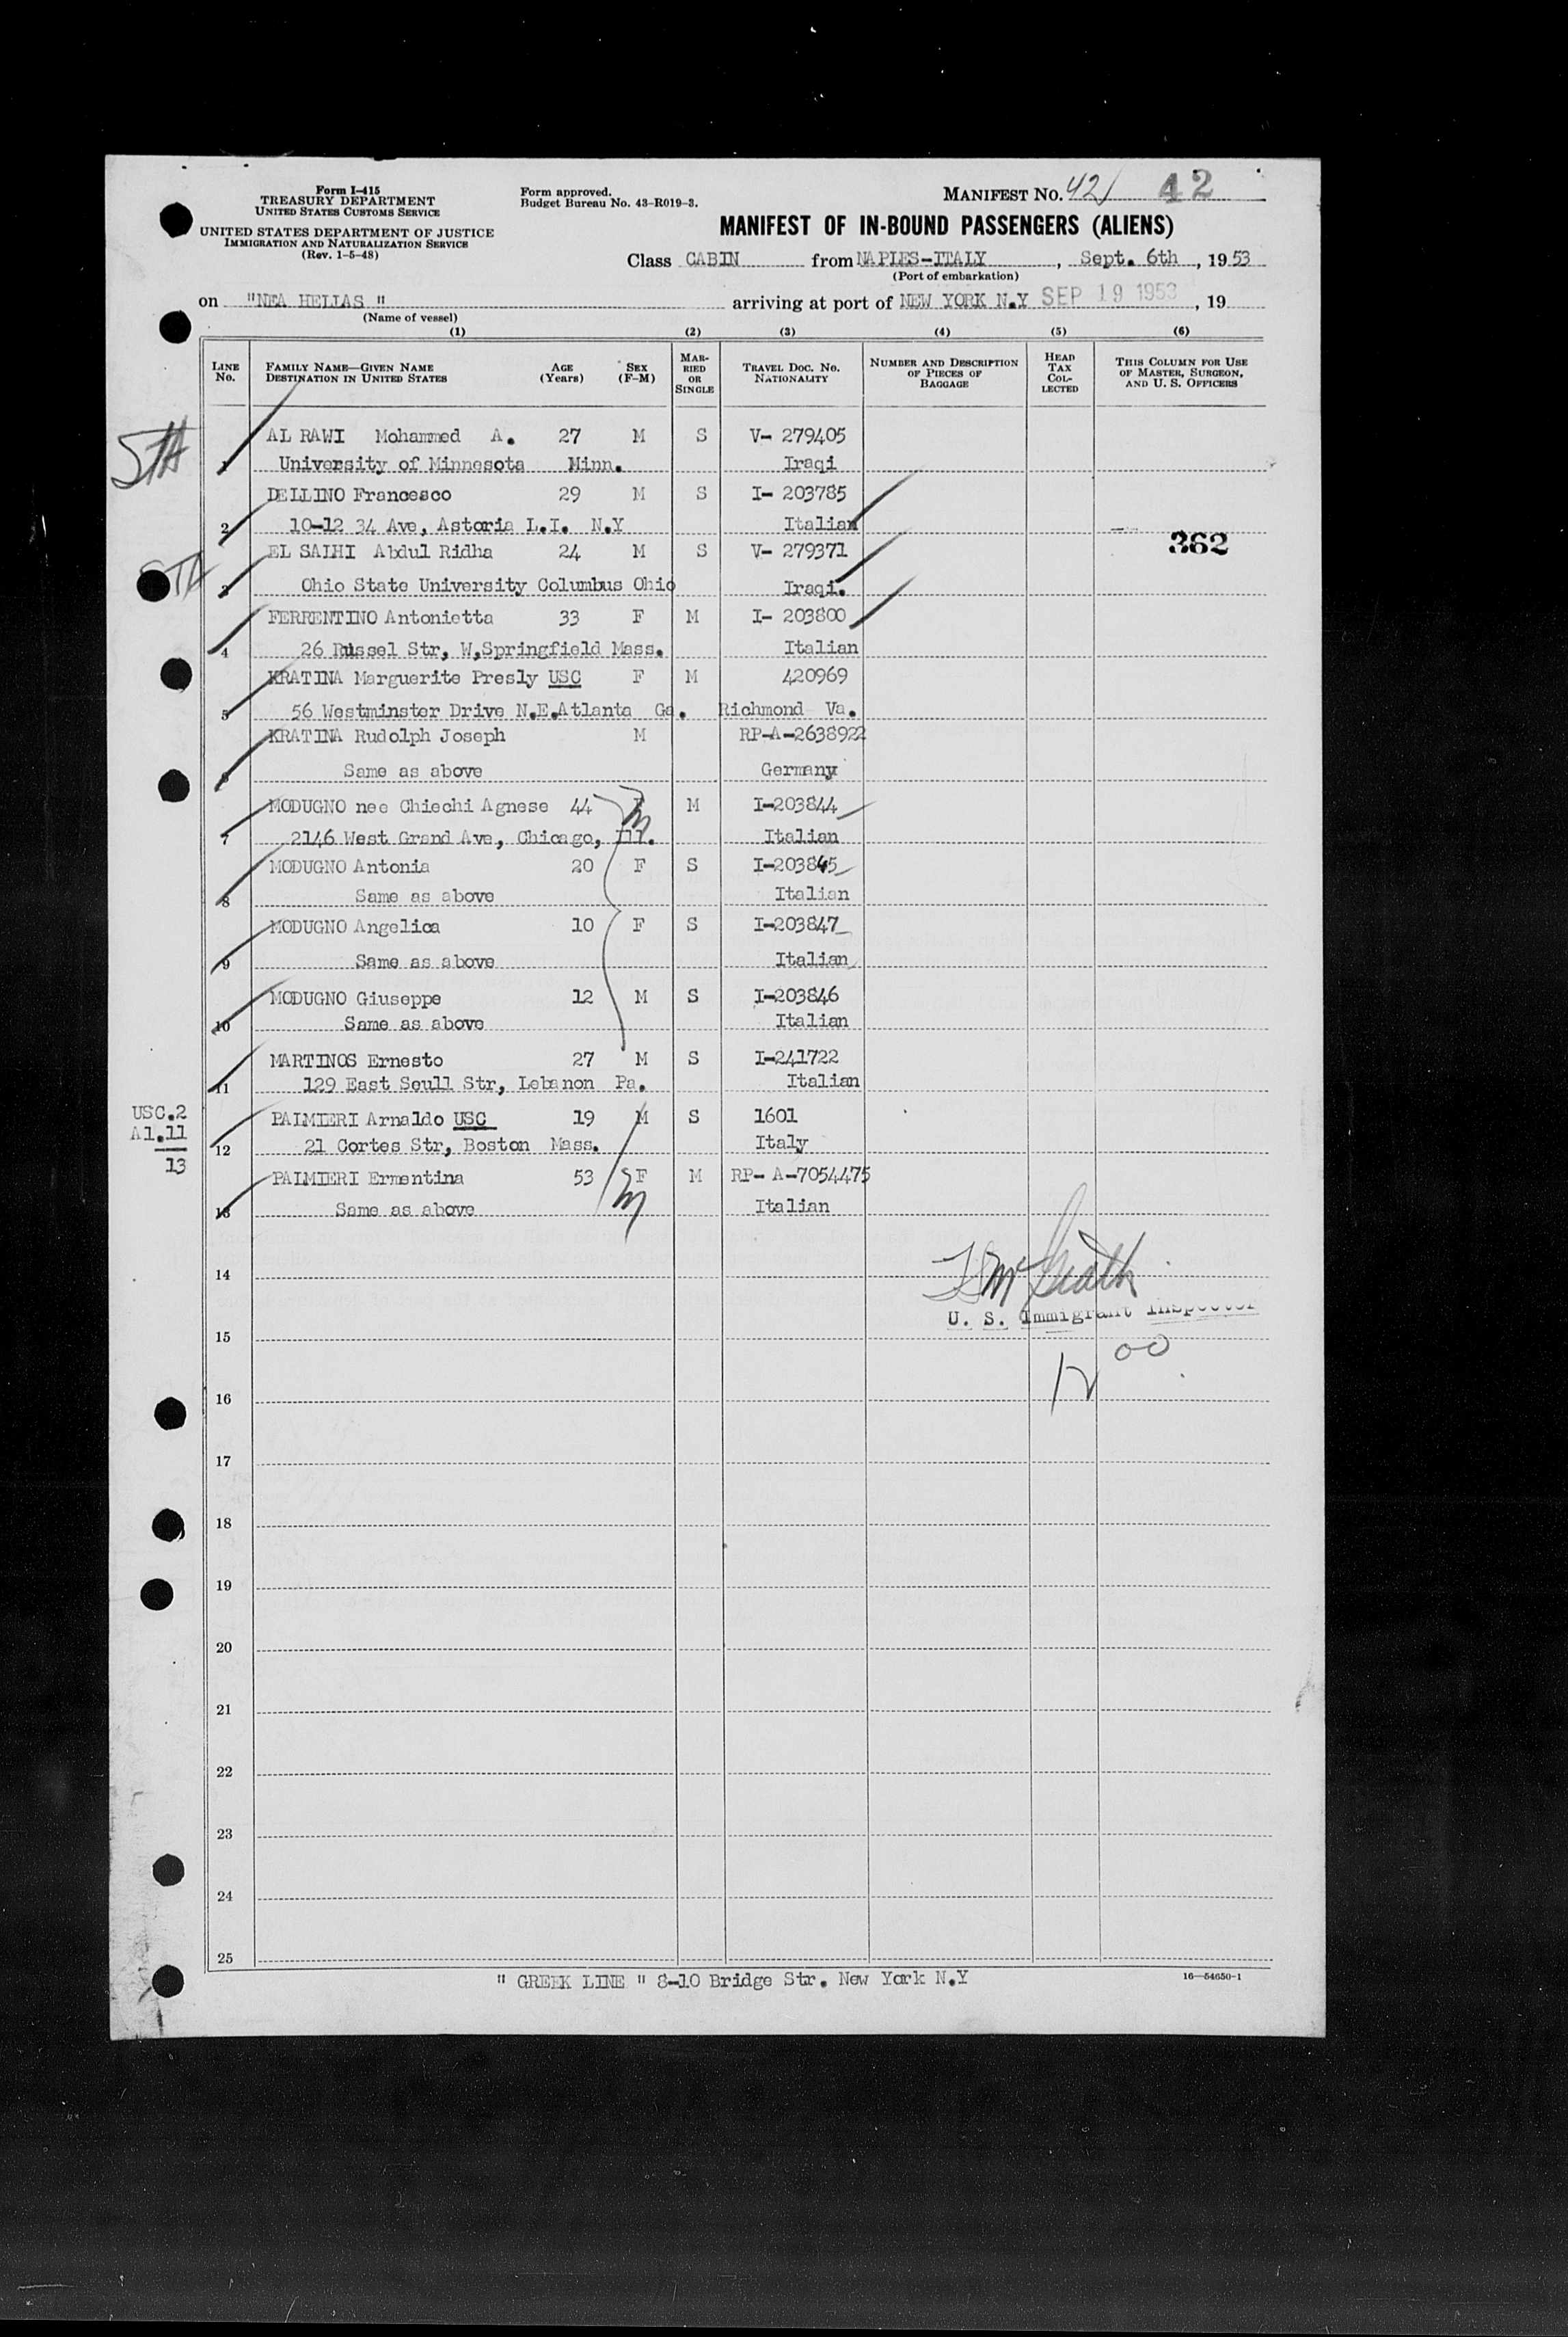 Form I-415
TREASURY DEPARTMENT
UNITED STATES CUSTOMS SERVICE
UNITED STATES DEPARTMENT OF JUSTICE
IMMIGRATION AND NATURALIZATION SERVICE
(Rev. 1-5-48)
Form approved.
Budget Bureau No. 43-R019-3.
MANIFEST No. 42 42
MANIFEST OF IN-BOUND PASSENGERS (ALIENS)
Class CABIN from NAPLES-ITALY, Sept. 6th, 1953
(Port of embarkation)
on "NEA HELLAS" arriving at port of NEW YORK N.Y SEP 19 1953, 19
(Name of vessel)
(1) (2) (3) (4) (5) (6)
LINE No. FAMILY NAME—GIVEN NAME DESTINATION IN UNITED STATES AGE (Years) SEX (F-M) MARRIED OR SINGLE TRAVEL DOC. NO. NATIONALITY NUMBER AND DESCRIPTION OF PIECES OF BAGGAGE HEAD TAX COLLECTED THIS COLUMN FOR USE OF MASTER, SURGEON, AND U. S. OFFICERS
STA
AL RAWI Mohammed A. 27 M S V- 279405
1 University of Minnesota Minn. Iraqi
DELLINO Francesco 29 M S I- 203785
2 10-12 34 Ave, Astoria L.I. N.Y Italian
362
EL SALHI Abdul Ridha 24 M S V- 279371
STA
3 Ohio State University Columbus Ohio Iraqi.
FERRENTINO Antonietta 33 F M I- 203800
4 26 Russel Str, W,Springfield Mass. Italian
KRATINA Marguerite Presly USC F M 420969
5 56 Westminster Drive N.E.Atlanta Ga. Richmond Va.
KRATINA Rudolph Joseph M RP-A-2638922
6 Same as above Germany
MODUGNO nee Chiechi Agnese 44 F M I-203844
7 2146 West Grand Ave, Chicago, Ill. Italian
MODUGNO Antonia 20 F S I-203845
8 Same as above Italian
MODUGNO Angelica 10 F S I-203847
9 Same as above Italian
MODUGNO Giuseppe 12 M S I-203846
10 Same as above Italian
MARTINOS Ernesto 27 M S I-241722
11 129 East Scull Str, Lebanon Pa. Italian
USC.2
Al.11
13
PALMIERI Arnaldo USC 19 M S 1601
12 21 Cortes Str, Boston Mass. Italy
PALMIERI Ermentina 53 F M RP- A-7054475
13 Same as above Italian
14
U. S. Immigrant Inspector
15
12 00
16
17
18
19
20
21
22
23
24
25
" GREEK LINE " 8-10 Bridge Str. New York N.Y
16—54650-1